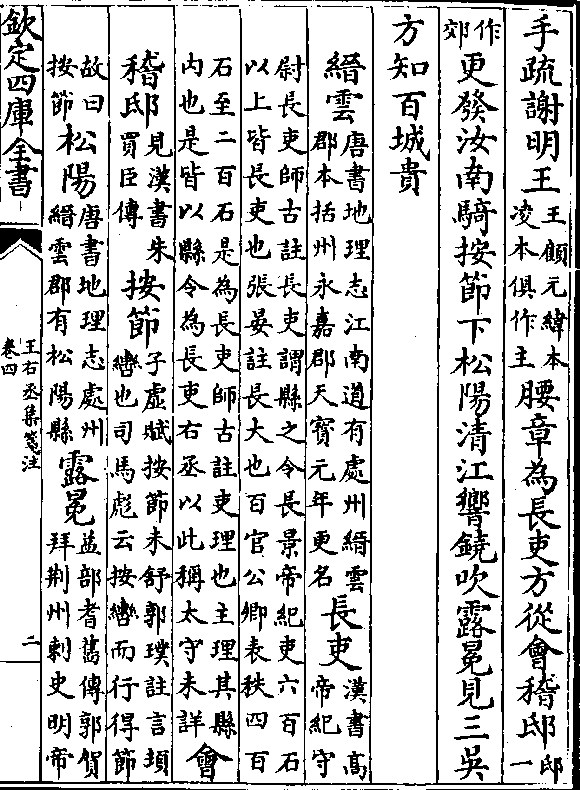 手疏謝明王王顧元緯本凌本俱作主腰章為長吏方從會稽邸邸一
作郊更發汝南騎按節下松陽清江響鐃吹露冕見三吳
方知百城貴
縉雲唐書地理志江南道有處州縉雲郡本括州永嘉郡天寶元年更名長吏漢書髙帝紀守
尉長吏師古註長吏謂縣之令長景帝紀吏六百石以上皆長吏也張晏註長大也百官公卿表秩四百
石至二百石是為長吏師古註吏理也主理其縣内也是皆以縣令為長吏右丞以此稱太守未詳會
稽邸見漢書朱買臣傳按節子虛賦按節未舒郭璞註言頓轡也司馬彪云按轡而行得節
故曰按節松陽唐書地理志處州縉雲郡有松陽縣露冕益部耆舊傳郭賀拜荆州刺史明帝
欽定四庫全書
王右丞集箋注
卷四
二